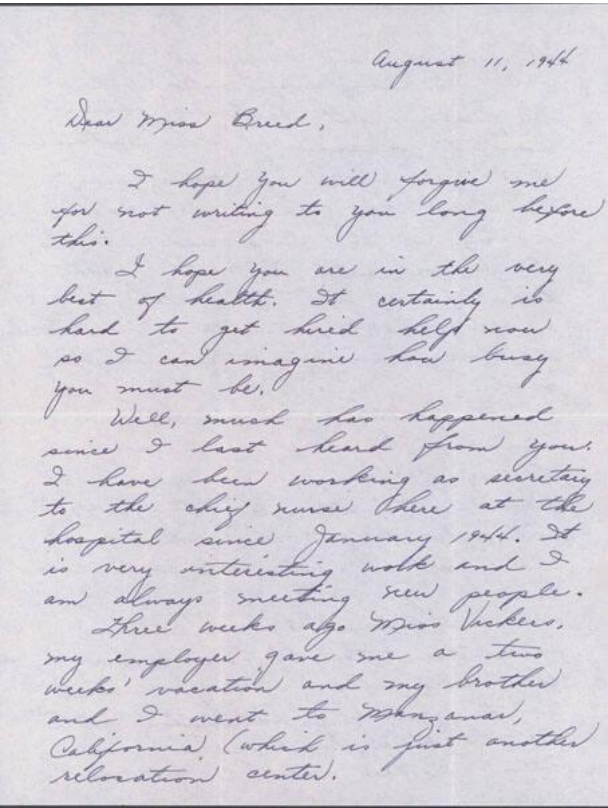 August 11, 1944
Dear Miss Breed,
I hope you will forgive me
for not writing to you long before
this.
I hope you are in the very
best of health. It certainly is
hard to get hired help now
so I can imagine how busy
you must be.
Well, much has happened
since I last heard from you.
I have been working as secretary
to the chief nurse here at the
hospital since January 1944. It
is very interesting work and I
am always meeting new people.
Three weeks ago Miss Vickers,
my employer gave me a two
weeks' vacation and my brother
and I went to Manzanar,
California (which is just another
relocation center.